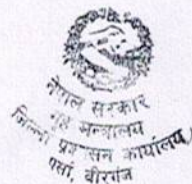 नेपाल सरकार
गृह मन्त्रालय
जिल्ला प्रशासन कार्यालय,
पर्सा, वीरगंज